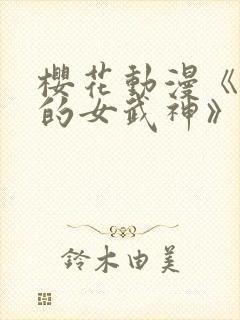 櫻花動漫《
的女武神》
鈴木由美